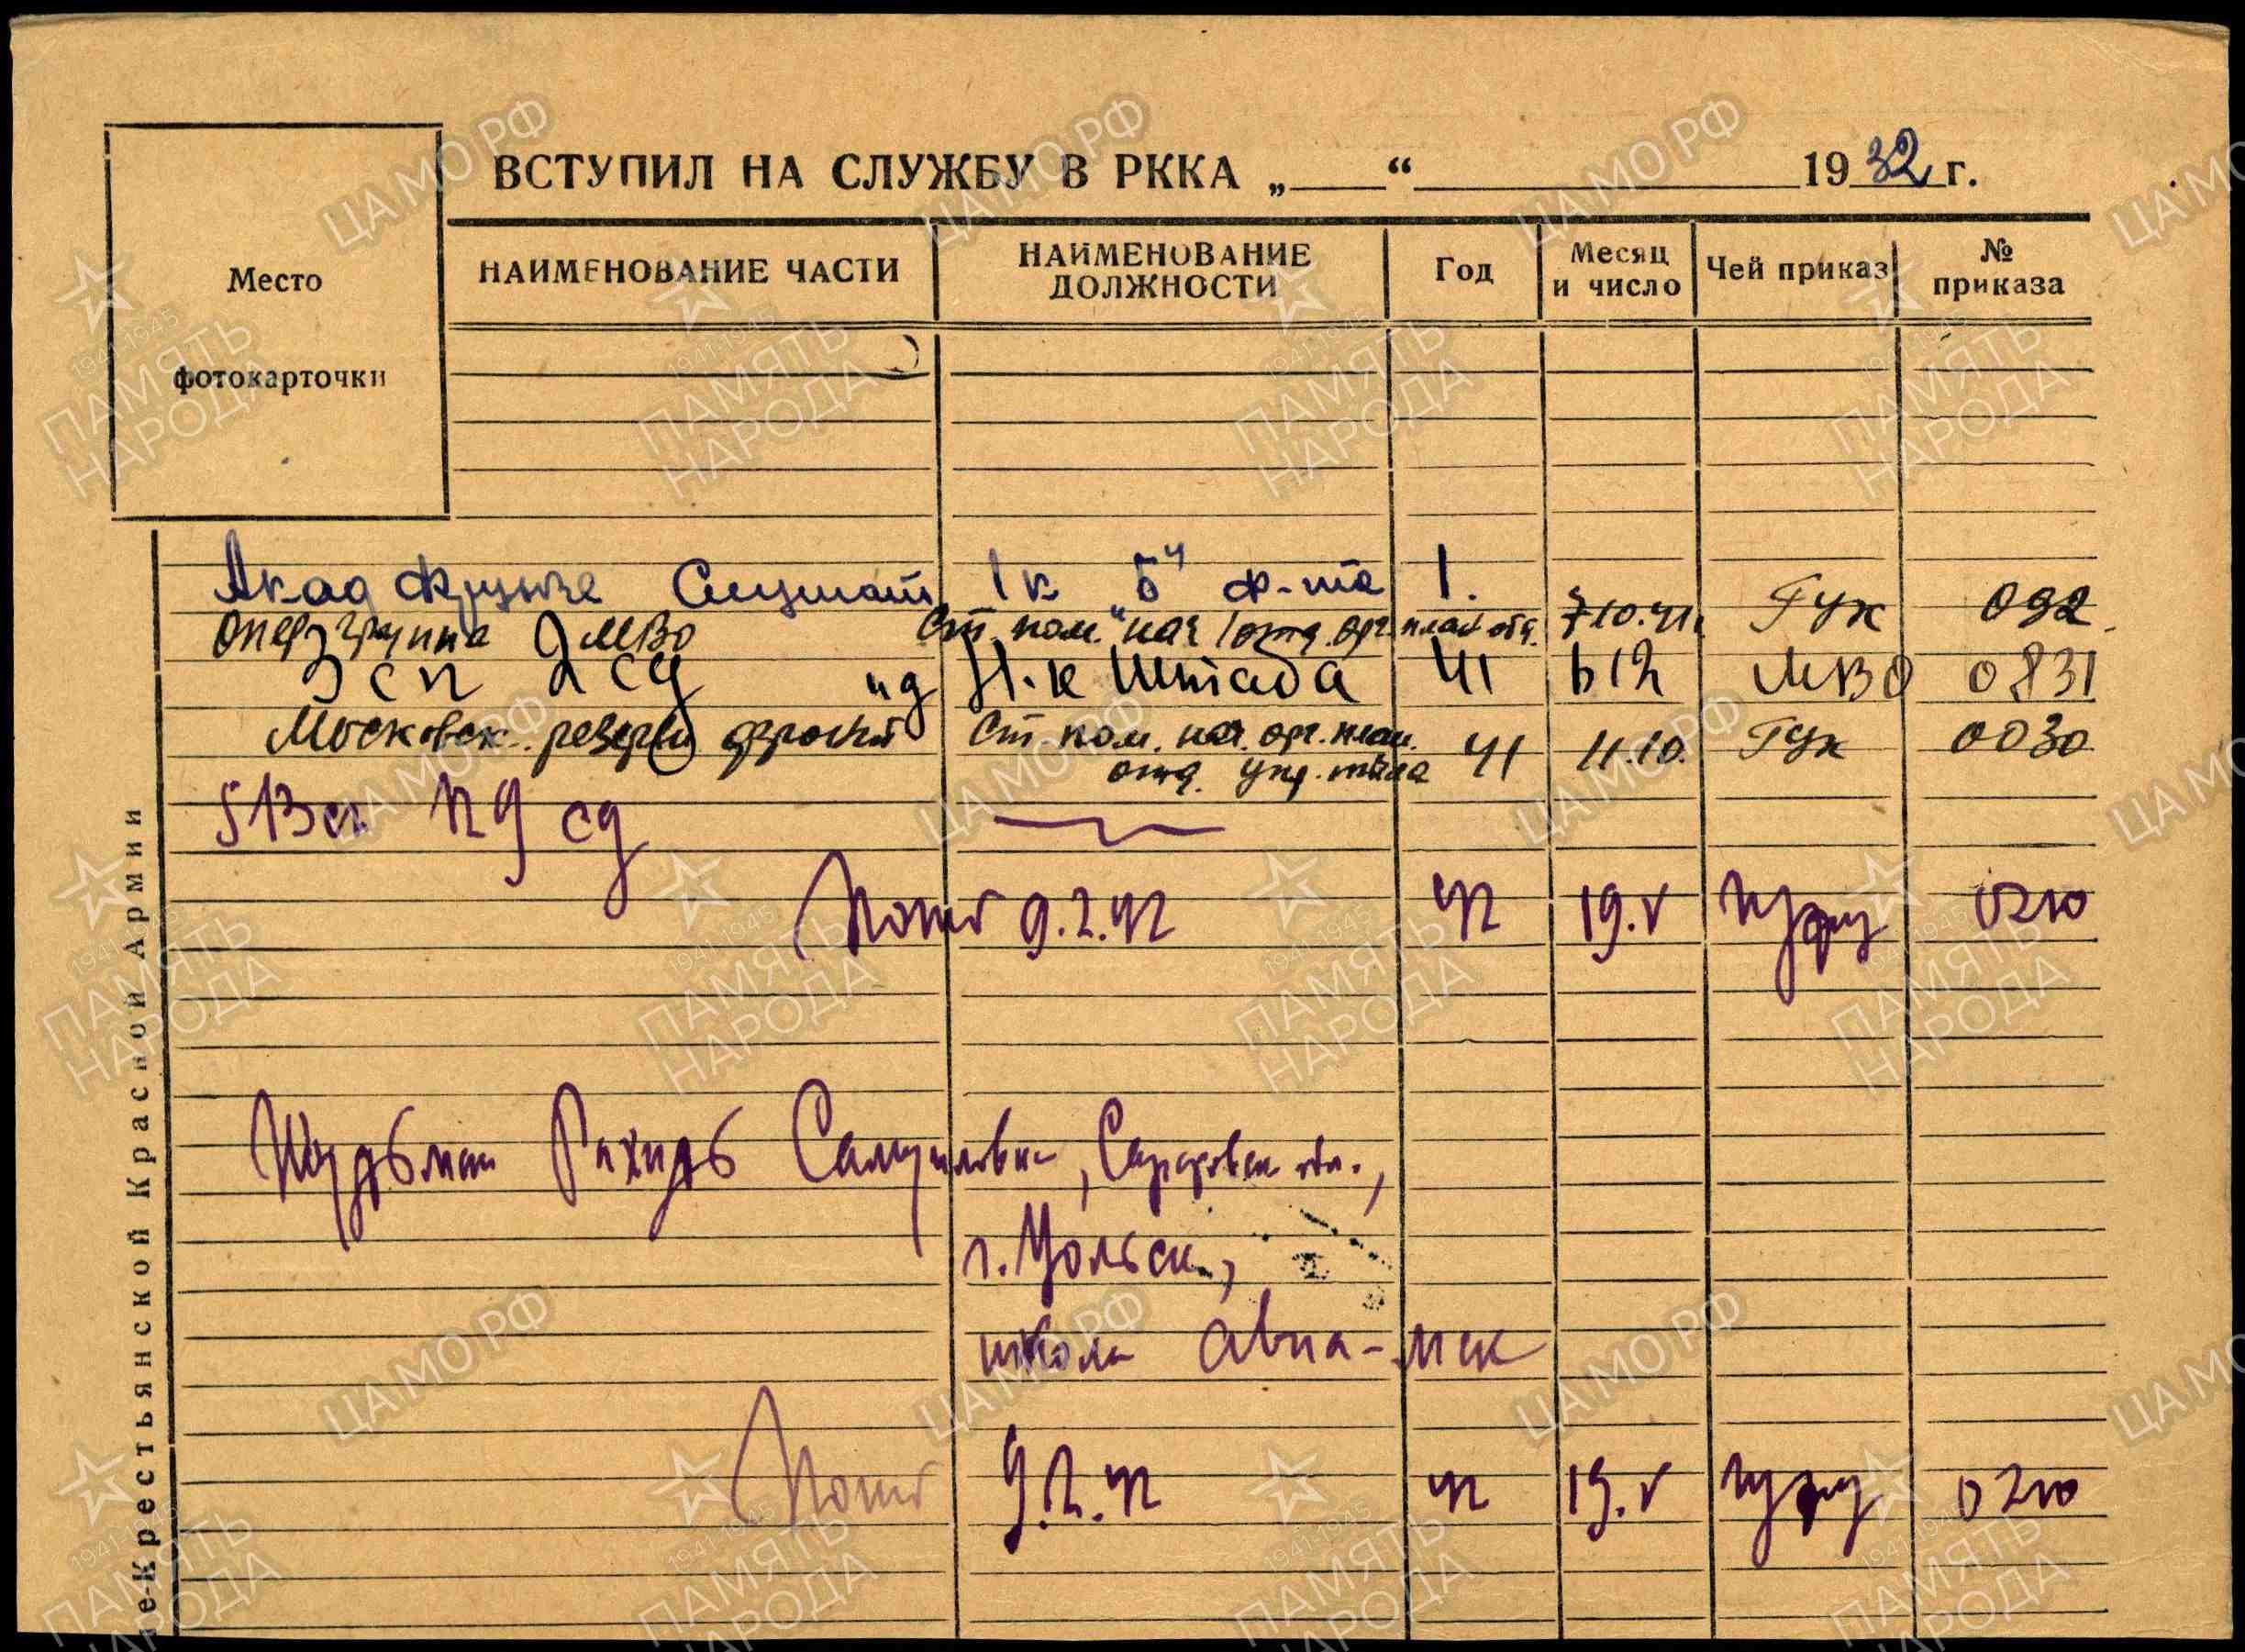 ВСТУПИЛ НА СЛУЖБУ В РККА „____“ 1932 г.
Место фотокарточки
НАИМЕНОВАНИЕ ЧАСТИ НАИМЕНОВАНИЕ ДОЛЖНОСТИ Год Месяц и число Чей приказ № приказа
Акад Фрунзе Слушат 1 к „Б“ ф-та 1.
Опер группа МВО Ст. пом. нач 1 отд. орг. план отд. 7 10.41. ГУК 092
3 сп 2 сд ид Н-к Штаба 41 612 МВО 0831
Московск. резервн фронт Ст пом. нач. орг. план. 41 11.10. ГУК 0030
отд. упр. тыла
513 сп сд
Погиб 9.2.42 42 19.V 0210
Рахиль Самуиловна, Саратовск обл.,
г. Вольск,
школа авиа-мех
Погиб 9.2.42 42 19.V 0210
е-Крестьянской Красной Армии
ЦАМО РФ
1941-1945
ПАМЯТЬ
НАРОДА